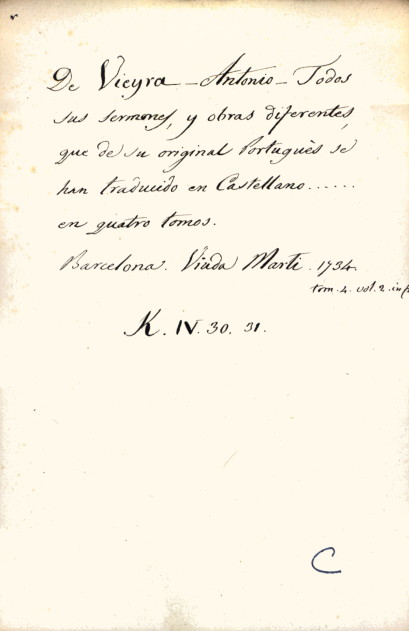 De Vieyra - Antonio - Todos
sus sermones, y obras diferentes,
que de su original Portuguès se
han traducido en Castellano......
en quatro tomos.
Barcelona. Viuda Marti. 1734.
tom. 4. vol. 2. in f
K. IV. 30. 31.
C